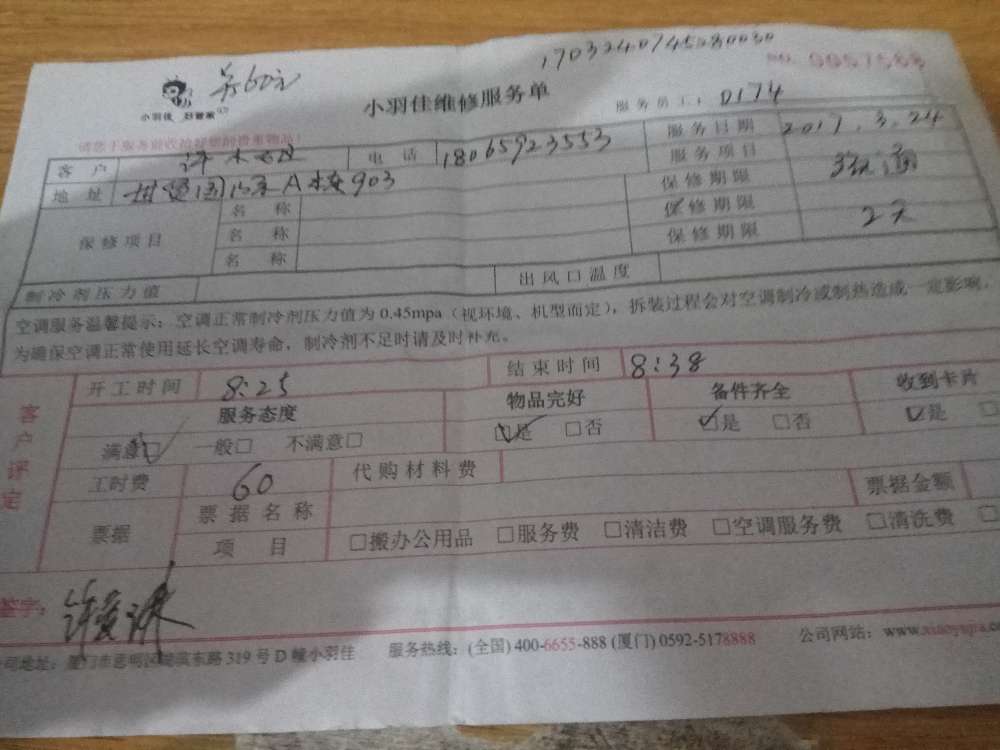 1703240745280030
NO. 0057588
60元
小羽佳 好管家
小羽佳维修服务单
服务员工: D174
请您于服务前收拾好您的贵重物品!
客 户 许
电 话 18065923553
服务日期 2017.3.24
地 址 园 A栋903
服务项目 疏通
保修项目
名 称
名 称
名 称
保修期限
保修期限 2天
保修期限
制冷剂压力值
出风口温度
空调服务温馨提示: 空调正常制冷剂压力值为 0.45mpa (视环境、机型而定), 拆装过程会对空调制冷或制热造成一定影响,
为确保空调正常使用延长空调寿命, 制冷剂不足时请及时补充。
客户评定
开工时间 8:25
结束时间 8:38
服务态度
物品完好
备件齐全
收到卡片
满意☑ 一般□ 不满意□
☑是 □否
☑是 □否
☑是 □
工时费 60
代购材料费
票据
票据名称
票据金额
项 目 □搬办公用品 □服务费 □清洁费 □空调服务费 □清洗费 □
签字:
公司地址: 厦门市思明区 东路 319 号 D 幢小羽佳
服务热线: (全国) 400-6655-888 (厦门) 0592-5178888
公司网站: www.xiaoyujia.co